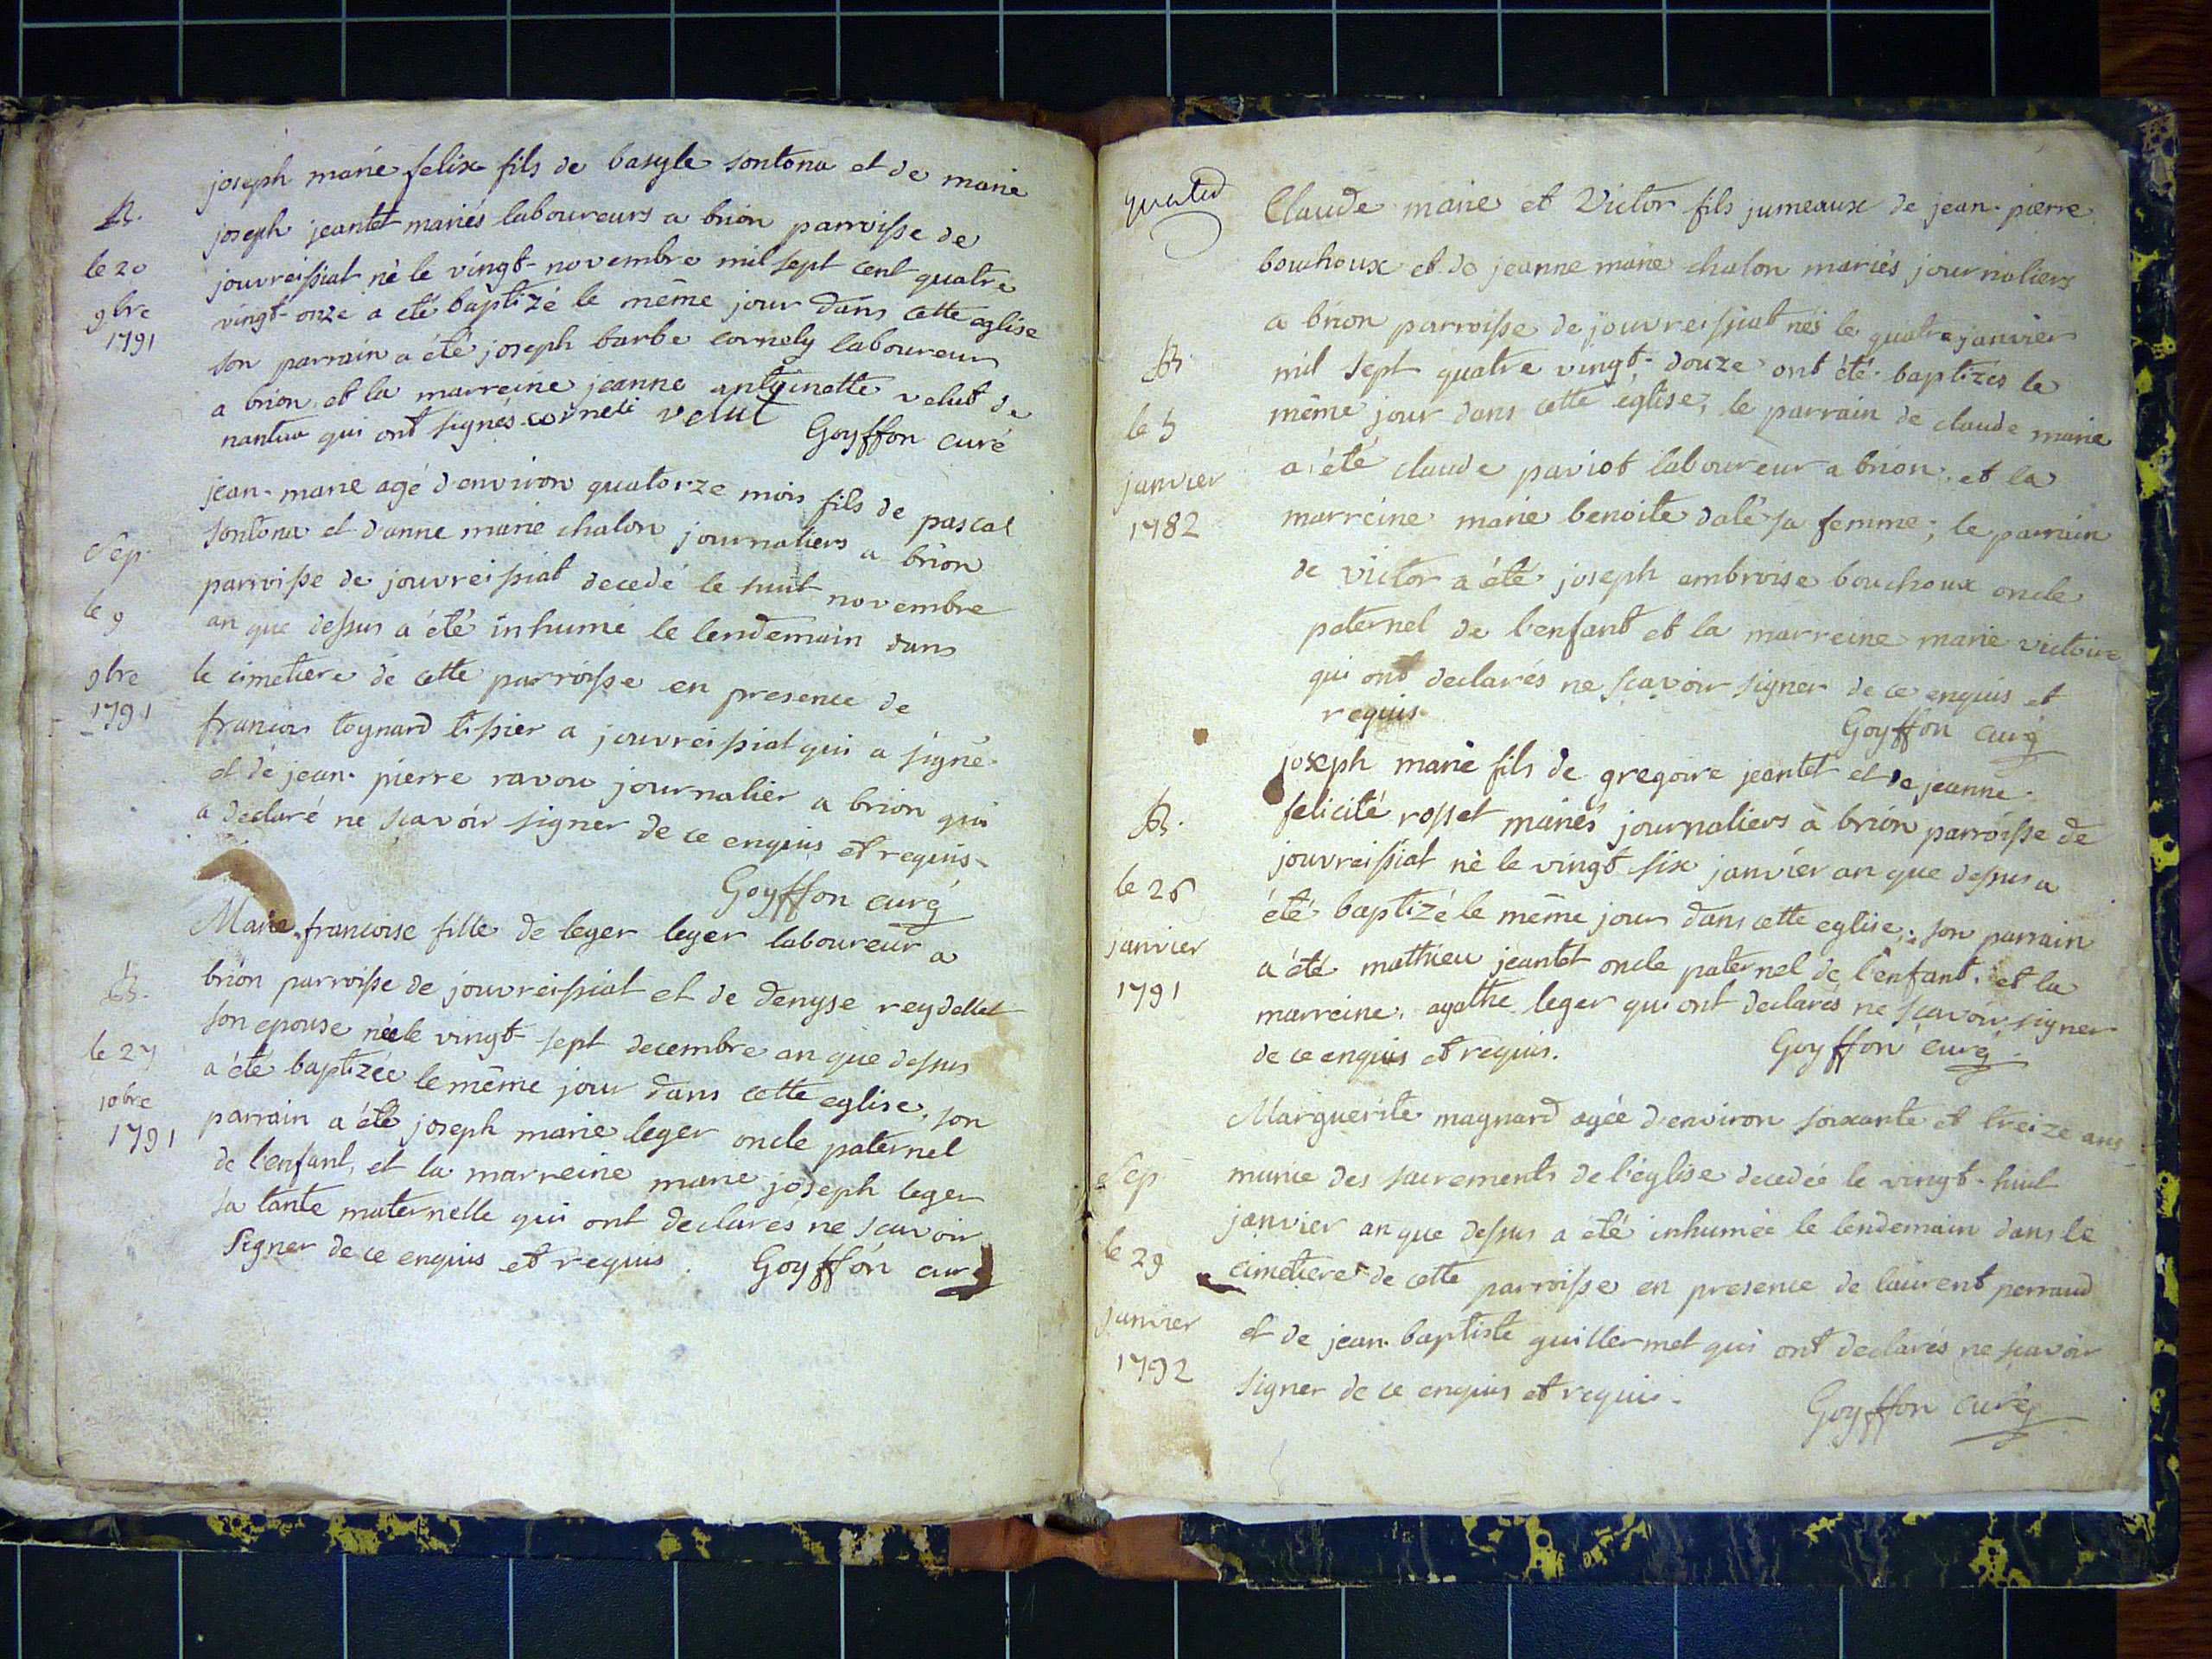 joseph marie felix fils de basyle sontona et de marie
B.
joseph jeantet mariés laboureurs a brion parroisse de
le 20
jouvreissiat né le vingt-novembre mil sept cent quatre
9bre
vingt-onze a été baptizé le même jour dans cette eglise
1791
son parrain a été joseph barbe cornely laboureur
a brion et la marreine jeanne antoinette velut de
nantua qui ont signés. corneli velut
Goyffon curé
jean-marie agé d'environ quatorze mois fils de pascal
sontona et d'anne marie chalon journaliers a brion
Sep.
parroisse de jouvreissiat decedé le huit novembre
le 9
an que dessus a été inhumé le lendemain dans
9bre
le cimetiere de cette parroisse en presence de
1791
francois toynard tissier a jouvreissiat qui a signé
et de jean-pierre ravou journalier a brion qui
a declaré ne scavoir signer de ce enquis et requis
Goyffon curé
Marie francoise fille de leger leger laboureur a
B.
brion parroisse de jouvreissiat et de denyse reydellet
son epouse née le vingt-sept decembre an que dessus
le 27
a été baptizée le même jour dans cette eglise, son
10bre
parrain a été joseph marie leger oncle paternel
1791
de l'enfant, et la marreine marie joseph leger
sa tante maternelle qui ont declarés ne scavoir
signer de ce enquis et requis. Goyffon curé
Claude marie et Victor fils jumeaux de jean-pierre
bouchoux et de jeanne marie chalon mariés journaliers
a brion parroisse de jouvreissiat nés le quatre janvier
B.
mil sept quatre vingt-douze ont été baptizés le
le 5
même jour dans cette eglise; le parrain de claude marie
a été claude pariot laboureur a brion, et la
janvier
marreine marie benoite dalé sa femme; le parrain
1782
de victor a été joseph ambroise bouchoux oncle
paternel de l'enfant et la marreine marie victoire
qui ont declarés ne scavoir signer de ce enquis et
requis.
Goyffon curé
joseph marie fils de gregoire jeantet et de jeanne
B.
felicité rosset mariés journaliers à brion parroisse de
jouvreissiat né le vingt six janvier an que dessus a
le 26
été baptizé le même jour dans cette eglise; son parrain
janvier
a été mathieu jeantet oncle paternel de l'enfant, et la
1791
marreine, agathe leger qui ont declarés ne scavoir signer
de ce enquis et requis. Goyffon curé
Marguerite magnard agée d'environ soixante et treize ans
Sep
munie des sacrements de l'église decedée le vingt-huit
janvier an que dessus a été inhumée le lendemain dans le
le 29
cimetiere de cette parroisse en presence de laurent perraud
janvier
et de jean-baptiste guillermet qui ont declarés ne scavoir
1792
signer de ce enquis et requis.
Goyffon curé